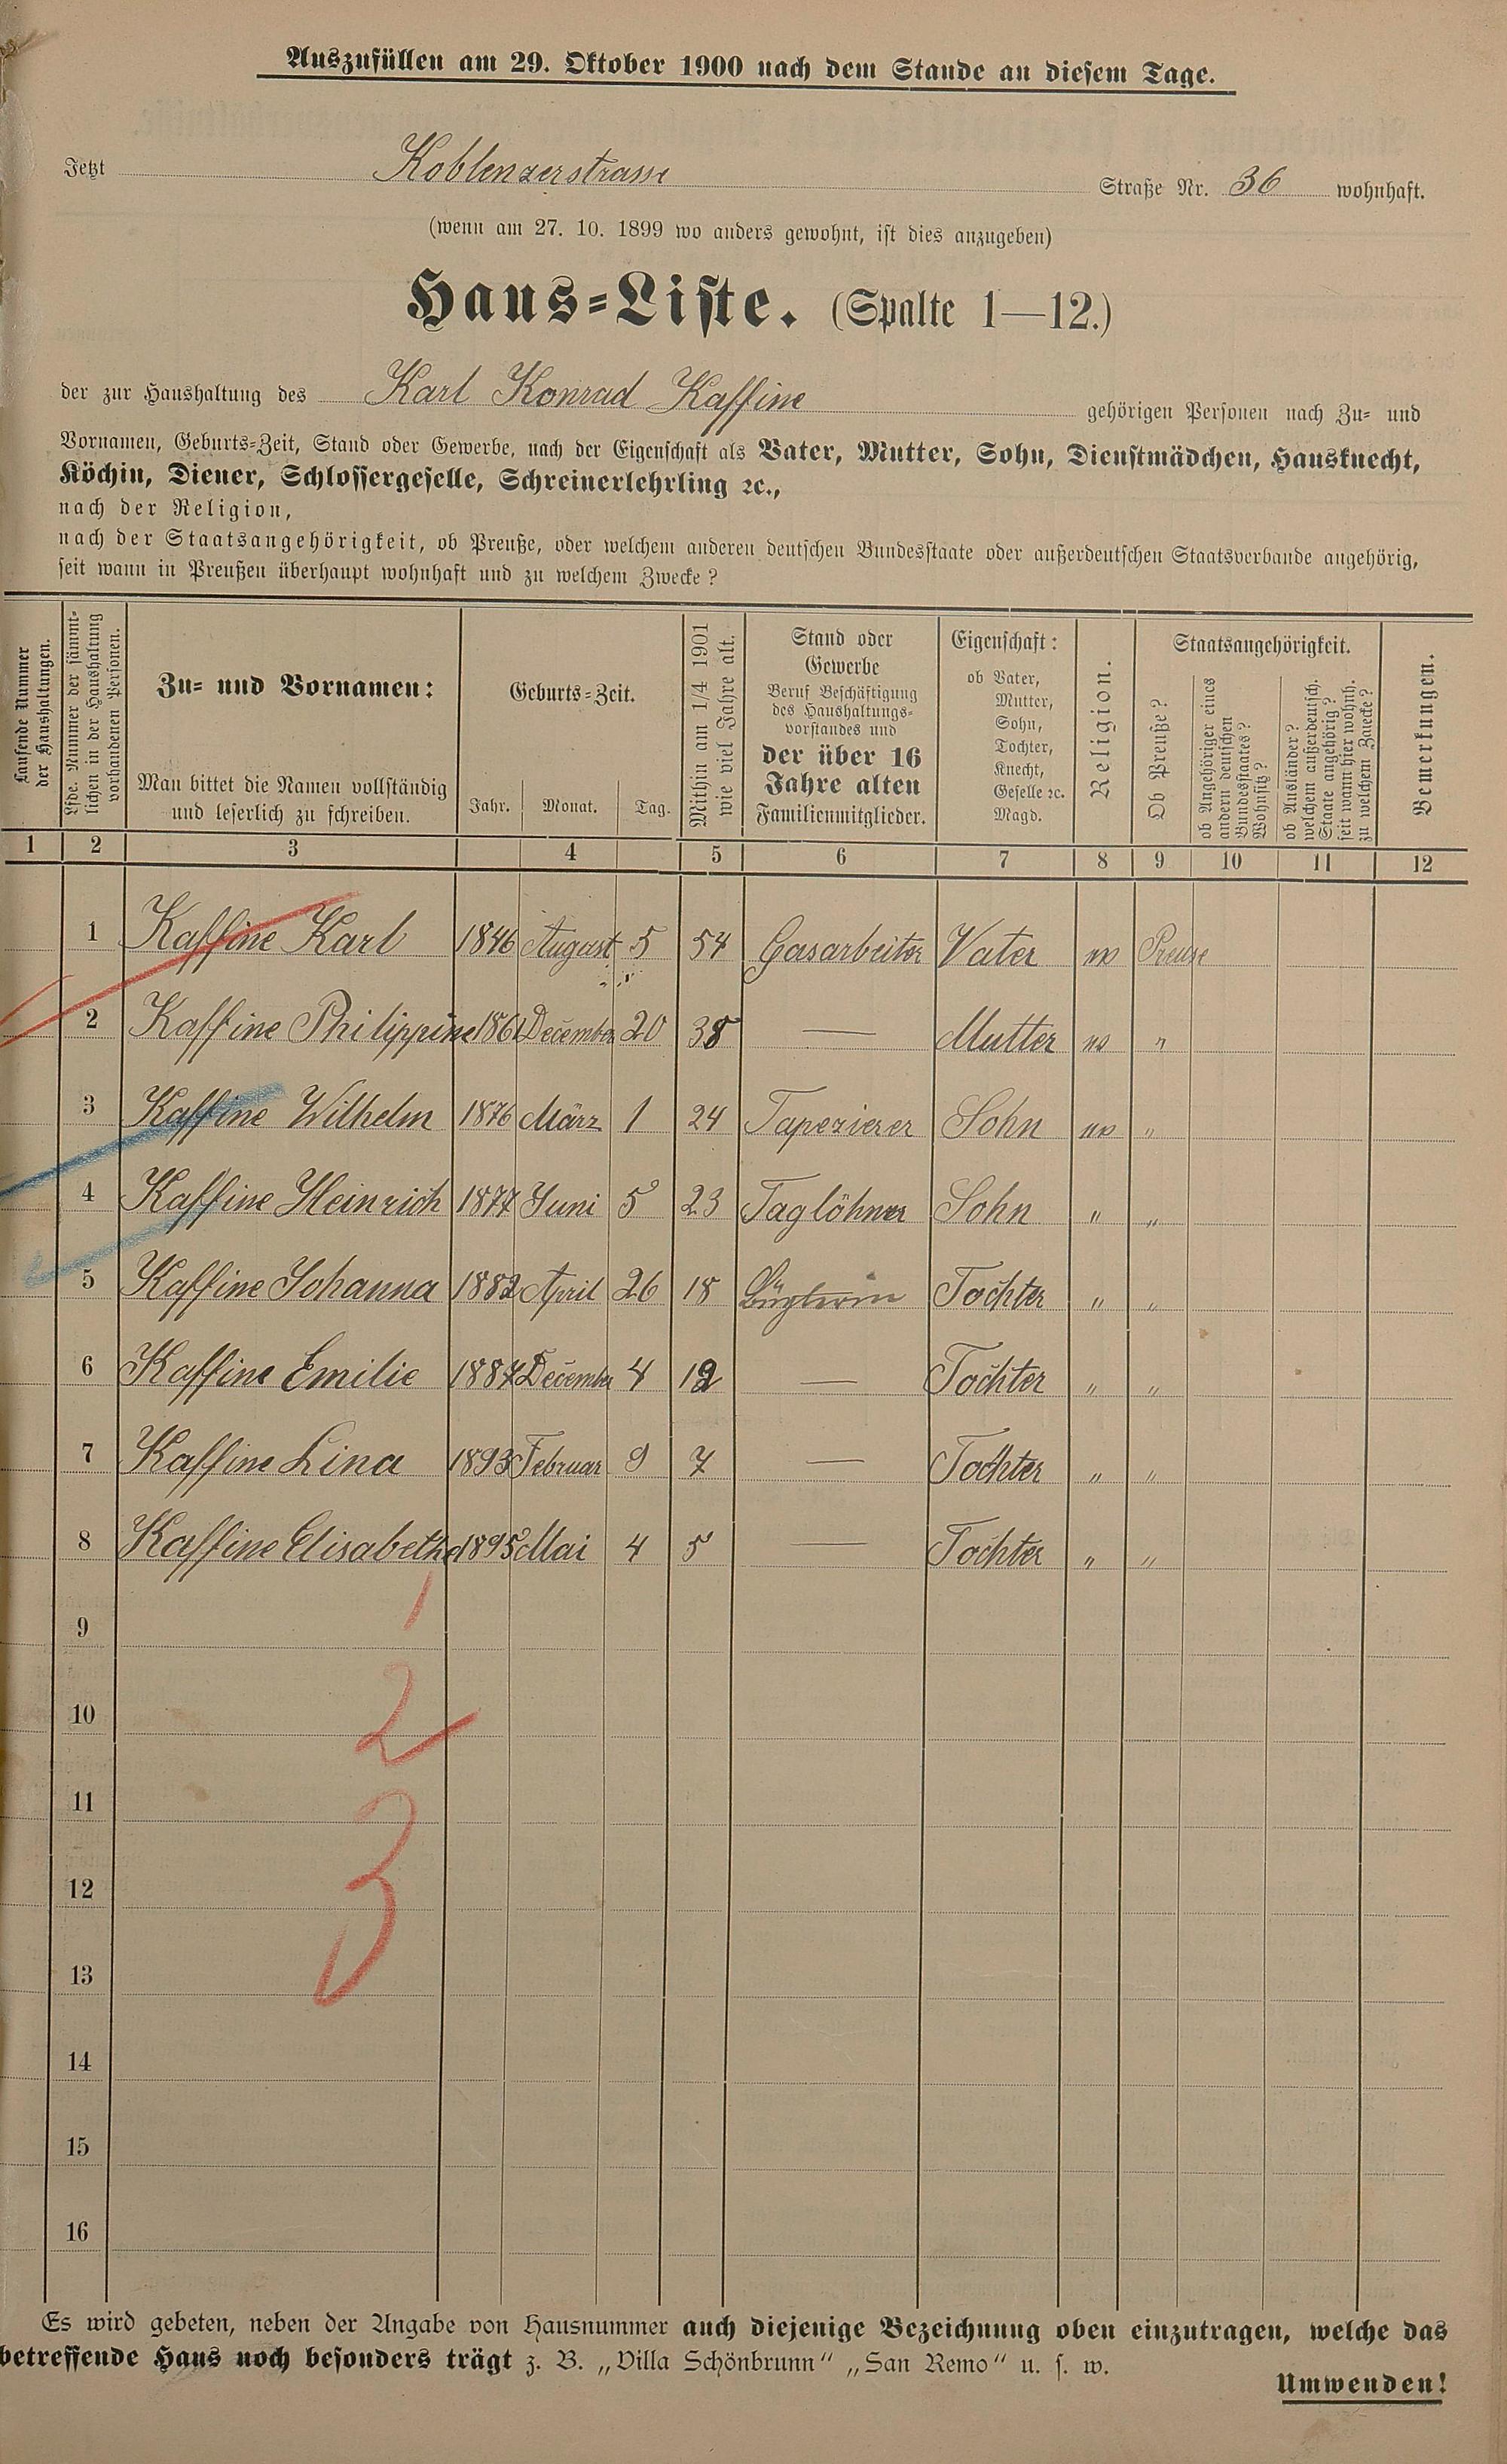 Auszufüllen am 29. Oktober 1900 nach dem Stande an diesem Tage.
Jetzt Koblenzerstrasse Straße Nr. 36 wohnhaft.
(wenn am 27. 10. 1899 wo anders gewohnt, ist dies anzugeben)
Haus=Liste. (Spalte 1—12.)
der zur Haushaltung des Karl Konrad Kaffine gehörigen Personen nach Zu= und
Vornamen, Geburts=Zeit, Stand oder Gewerbe, nach der Eigenschaft als Vater, Mutter, Sohn, Dienstmädchen, Hausknecht,
Köchin, Diener, Schlossergeselle, Schreinerlehrling ꝛc.,
nach der Religion,
nach der Staatsangehörigkeit, ob Preuße, oder welchem anderen deutschen Bundesstaate oder außerdeutschen Staatsverbande angehörig,
seit wann in Preußen überhaupt wohnhaft und zu welchem Zwecke?
Laufende Nummer
der Haushaltungen.
Lfde. Nummer der sämmt-
lichen in der Haushaltung
vorhandenen Personen.
Zu= und Vornamen:
Man bittet die Namen vollständig
und leserlich zu schreiben.
Geburts=Zeit.
Jahr. Monat. Tag.
Mithin am 1/4 1901
wie viel Jahre alt.
Stand oder
Gewerbe
Beruf Beschäftigung
des Haushaltungs=
vorstandes und
der über 16
Jahre alten
Familienmitglieder.
Eigenschaft:
ob Vater,
Mutter,
Sohn,
Tochter,
Knecht,
Geselle ꝛc.
Magd.
Religion.
Staatsangehörigkeit.
Ob Preuße?
ob Angehöriger eines
andern deutschen
Bundesstaates?
Wohnsitz?
ob Ausländer?
welchem außerdeutsch.
Staate angehörig?
seit wann hier wohnh.
zu welchem Zwecke?
Bemerkungen.
1 2 3 4 5 6 7 8 9 10 11 12
1 Kaffine Karl 1846 August 5 54 Gasarbeiter Vater Preuse
2 Kaffine Philippine 1861 December 20 38 — Mutter "
3 Kaffine Wilhelm 1876 März 1 24 Tapezierer Sohn "
4 Kaffine Heinrich 1877 Juni 5 23 Taglöhner Sohn " "
5 Kaffine Johanna 1882 April 26 18 Büglerin Tochter " "
6 Kaffine Emilie 1887 December 4 12 — Tochter " "
7 Kaffine Lina 1893 Februar 9 7 — Tochter " "
8 Kaffine Elisabethe 1895 Mai 4 5 — Tochter " "
1
9
2
10
3
11
12
13
14
15
16
Es wird gebeten, neben der Angabe von Hausnummer auch diejenige Bezeichnung oben einzutragen, welche das
betreffende Haus noch besonders trägt z. B. „Villa Schönbrunn" „San Remo" u. s. w.
Umwenden!